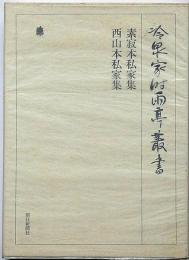 冷泉家時雨亭叢書
素寂本私家集
西山本私家集
朝日新聞社